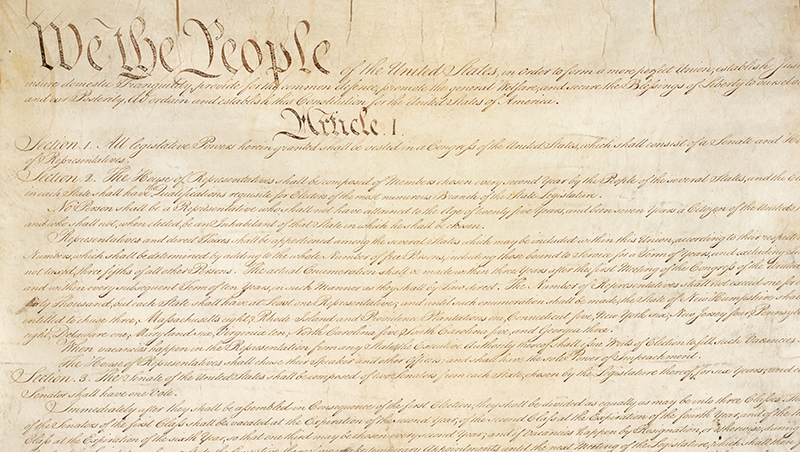 We the People of the United States, in Order to form a more perfect Union, establish Jus
insure domestic Tranquility, provide for the common defence, promote the general Welfare, and secure the Blessings of Liberty to ourselves
and our Posterity, do ordain and establish this Constitution for the United States of America.
Article. I.
Section. 1. All legislative Powers herein granted shall be vested in a Congress of the United States, which shall consist of a Senate and Ho
of Representatives.
Section. 2. The House of Representatives shall be composed of Members chosen every second Year by the People of the several States, and the El
in each State shall have the Qualifications requisite for Electors of the most numerous Branch of the State Legislature.
No Person shall be a Representative who shall not have attained to the Age of twenty five Years, and been seven Years a Citizen of the United S
and who shall not, when elected, be an Inhabitant of that State in which he shall be chosen.
Representatives and direct Taxes shall be apportioned among the several States which may be included within this Union, according to their respect
Numbers, which shall be determined by adding to the whole Number of free Persons, including those bound to Service for a Term of Years, and excluding
not taxed, three fifths of all other Persons. The actual Enumeration shall be made within three Years after the first Meeting of the Congress of the United
and within every subsequent Term of ten Years, in such Manner as they shall by Law direct. The Number of Representatives shall not exceed one for
thirty Thousand, but each State shall have at Least one Representative; and until such enumeration shall be made, the State of New Hampshire shall
entitled to chuse three, Massachusetts eight, Rhode Island and Providence Plantations one, Connecticut five, New York six, New Jersey four, Pennsylv
eight, Delaware one, Maryland six, Virginia ten, North Carolina five, South Carolina five, and Georgia three.
When vacancies happen in the Representation from any State, the Executive Authority thereof shall issue Writs of Election to fill such Vacancies.
The House of Representatives shall chuse their Speaker and other Officers; and shall have the sole Power of Impeachment.
Section. 3. The Senate of the United States shall be composed of two Senators from each State, chosen by the Legislature thereof, for six Years; and
Senator shall have one Vote.
Immediately after they shall be assembled in Consequence of the first Election, they shall be divided as equally as may be into three Classes. Th
of the Senators of the first Class shall be vacated at the Expiration of the second Year, of the second Class at the Expiration of the fourth Year, and of the th
Class at the Expiration of the sixth Year, so that one third may be chosen every second Year; and if Vacancies happen by Resignation, or otherwise, during